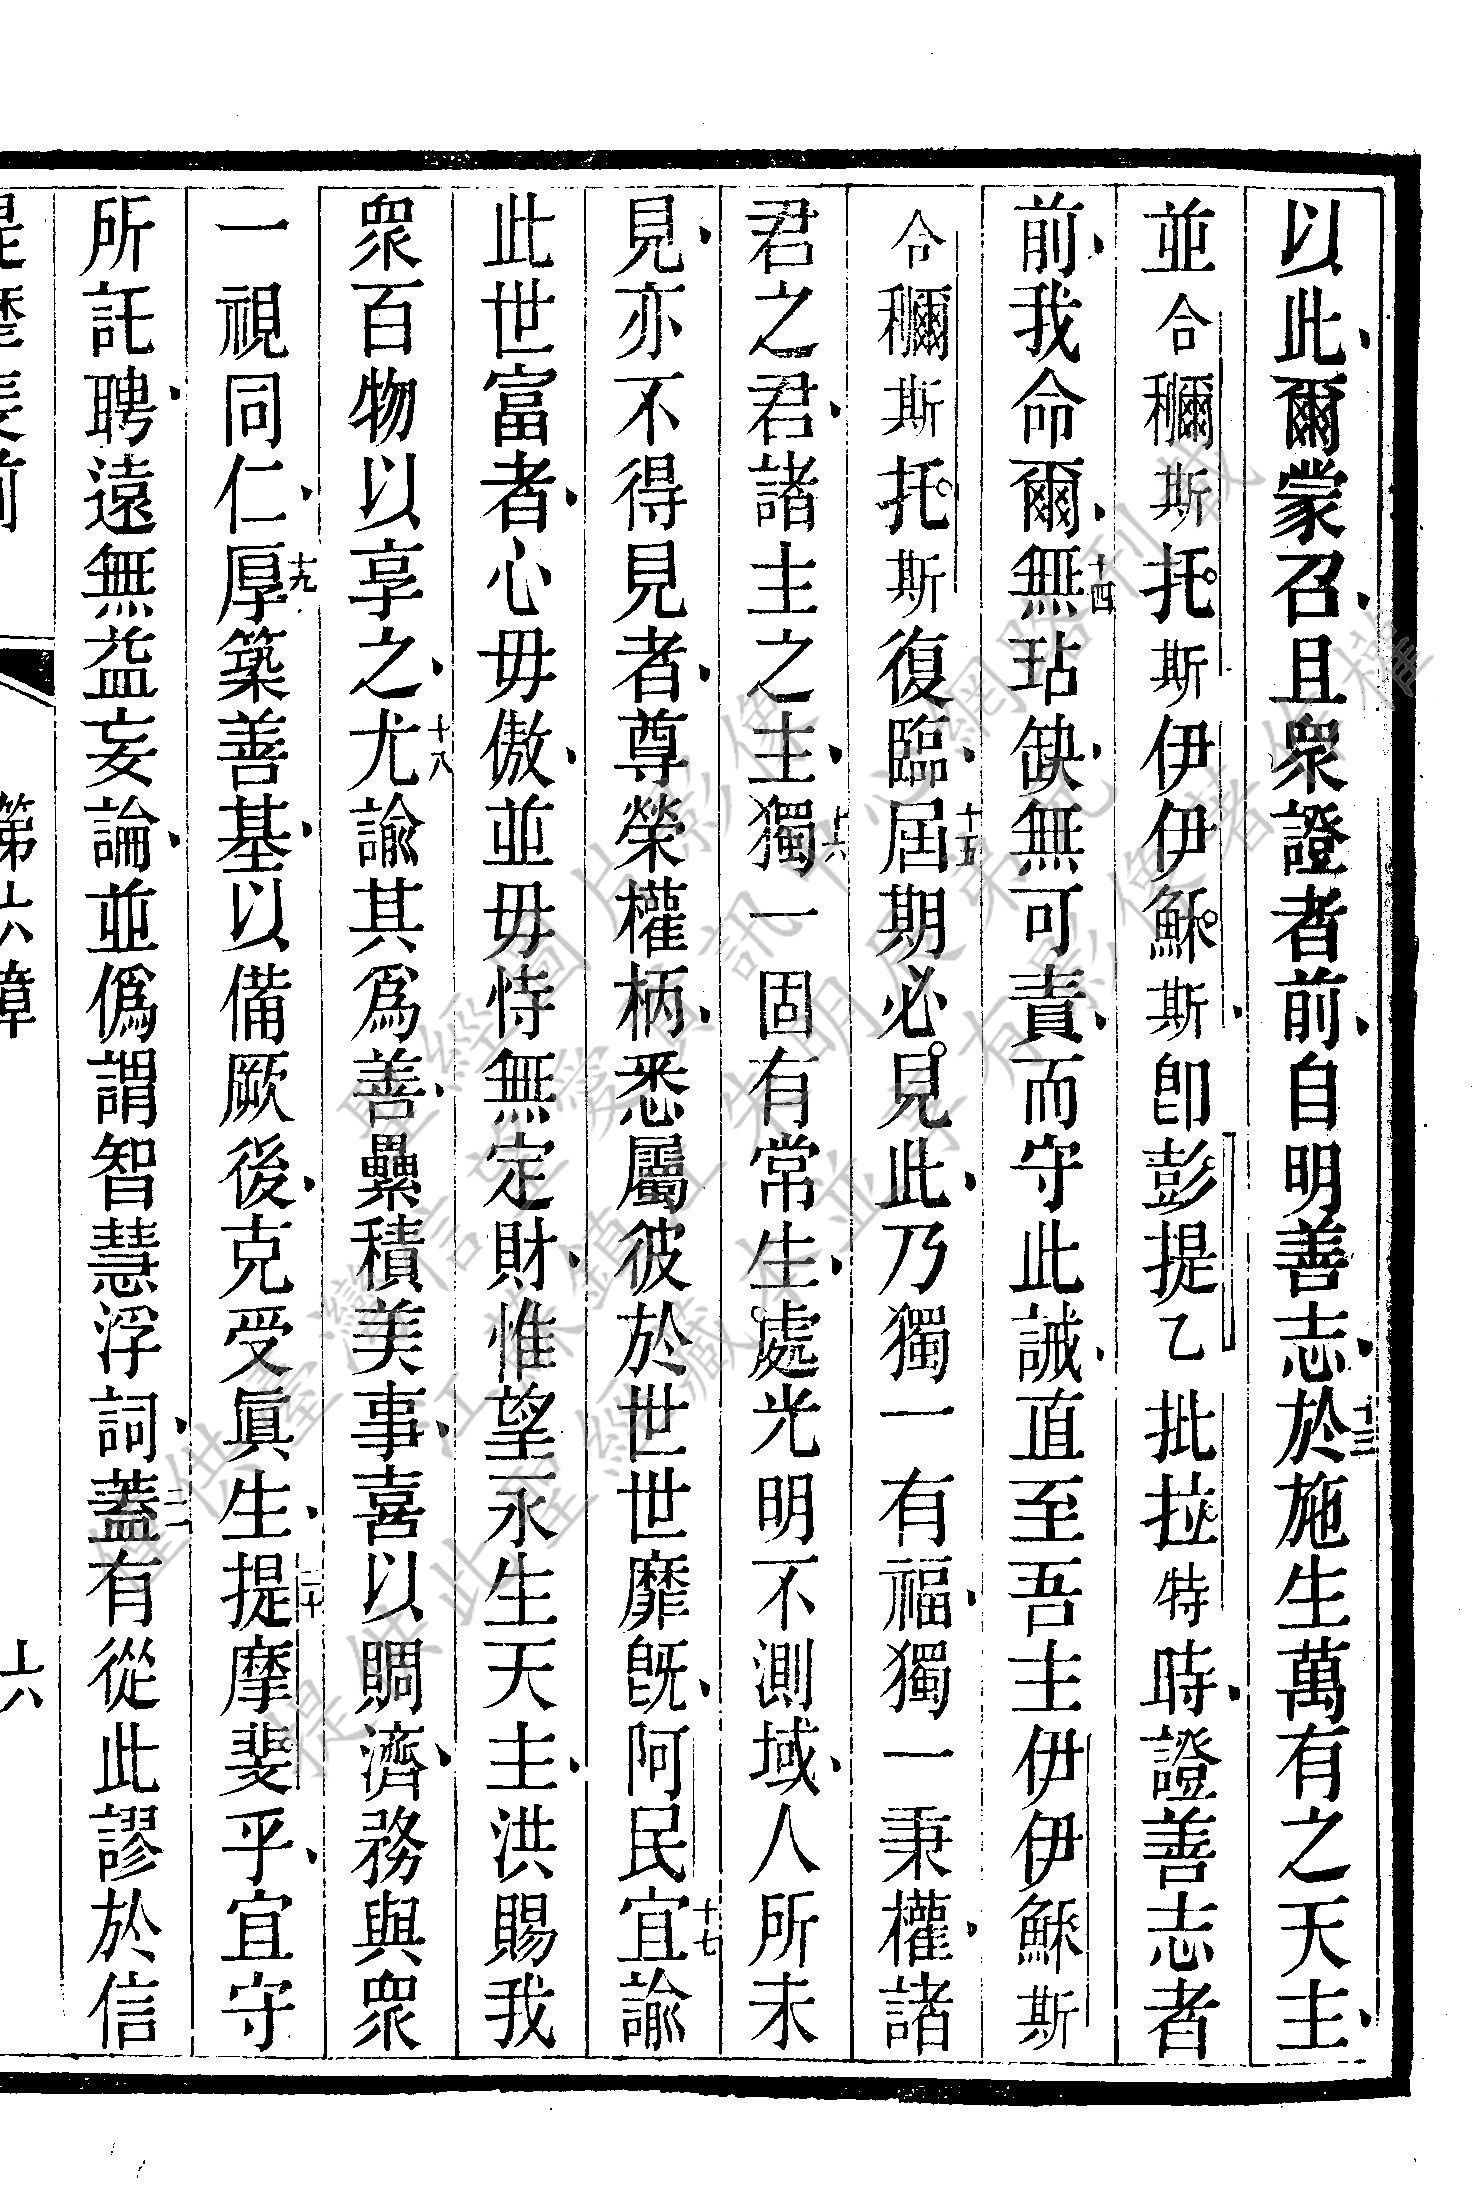 以此爾蒙召且衆證者前自明善志十三於施生萬有之天主
並合穪斯托斯伊伊穌斯卽彭提乙批拉特時證善志者
前我命爾十四無玷缺無可責而守此誡直至吾主伊伊穌斯
合穪斯托斯復臨十五屆期必見此乃獨一有福獨一秉權諸
君之君諸主之主十六獨一固有常生處光明不測域人所未
見亦不得見者尊榮權柄悉屬彼於世世靡旣阿民十七宜諭
此世富者心毋傲並毋恃無定財惟望永生天主洪賜我
衆百物以享之十八尤諭其爲善纍積美事喜以賙濟務與衆
一視同仁十九厚築善基以備厥後克受眞生二十提摩斐乎宜守
所託聘遠無益妄論並僞謂智慧浮詞二一蓋有從此謬於信
提摩 前 第六章 十六